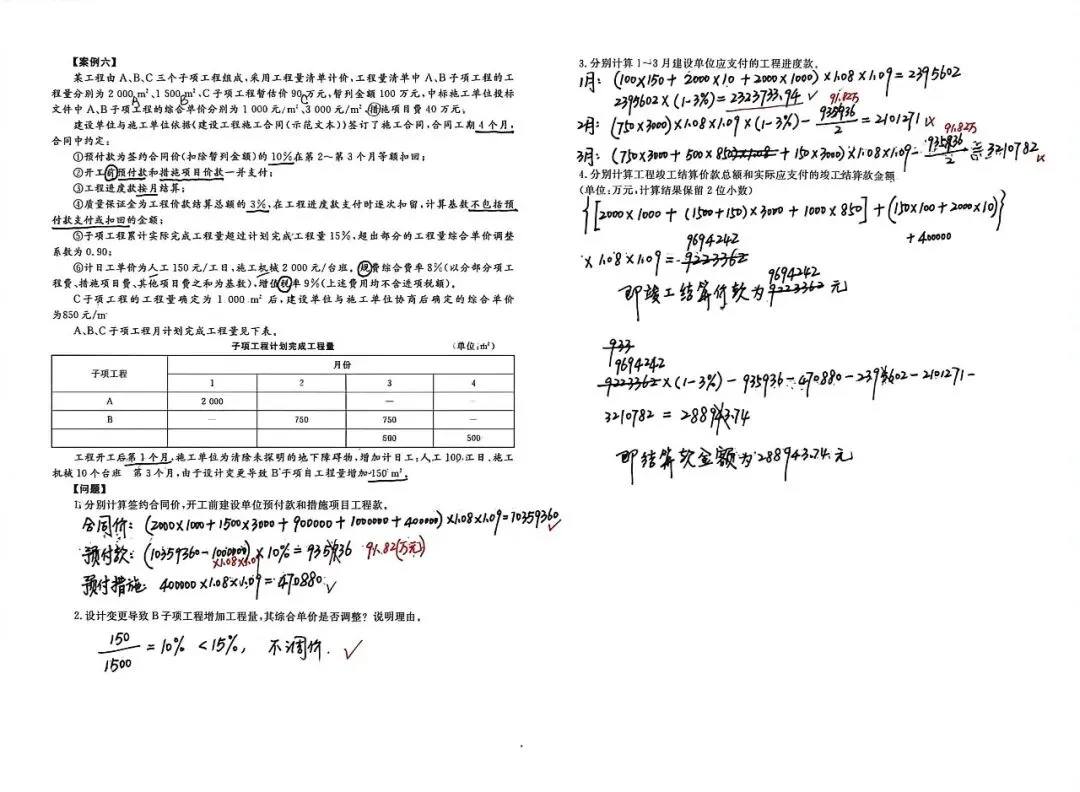 【案例六】
某工程由 A、B、C 三个子项工程组成,采用工程量清单计价,工程量清单中 A、B 子项工程的工
程量分别为 2 000 m²、1 500 m²、C 子项工程暂估价 90 万元,暂列金额 100 万元,中标施工单位投标
A B C
文件中 A、B 子项工程的综合单价分别为 1 000 元/m²、3 000 元/m²,措施项目费 40 万元。
建设单位与施工单位依据《建设工程施工合同(示范文本)》签订了施工合同,合同工期 4 个月,
合同中约定:
①预付款为签约合同价(扣除暂列金额)的 10%在第 2~第 3 个月等额扣回;
②开工前预付款和措施项目价款一并支付;
③工程进度款按月结算;
④质量保证金为工程价款结算总额的 3%,在工程进度款支付时逐次扣留,计算基数不包括预
付款支付或扣回的金额;
⑤子项工程累计实际完成工程量超过计划完成工程量 15%,超出部分的工程量综合单价调整
系数为 0.90;
⑥计日工单价为人工 150 元/工日,施工机械 2 000 元/台班。规费综合费率 8%(以分部分项工
程费、措施项目费、其他项目费之和为基数),增值税率 9%(上述费用均不含进项税额)。
C 子项工程的工程量确定为 1 000 m² 后,建设单位与施工单位协商后确定的综合单价
为850 元/m
A、B、C 子项工程月计划完成工程量见下表。
子项工程计划完成工程量 (单位:m²)
子项工程 月份
1 2 3 4
A 2 000 —
B — 750 750
500 500
工程开工后第 1 个月,施工单位为清除未探明的地下障碍物,增加计日工:人工 100 工日、施工
机械 10 个台班 第 3 个月,由于设计变更导致 B 子项目工程量增加 150 m²。
【问题】
1. 分别计算签约合同价,开工前建设单位预付款和措施项目工程款。
合同价: (2000×1000+1500×3000+900000+1000000+400000)×1.08×1.09=10359360 ✓
预付款: (10359360-1000000)×10%=935936 91.82(万元)
×1.08×1.09
预付措施: 400000×1.08×1.09=470880 ✓
2. 设计变更导致 B 子项工程增加工程量,其综合单价是否调整?说明理由。
150/1500=10% <15%, 不调价. ✓
3. 分别计算 1~3 月建设单位应支付的工程进度款。
1月: (100×150+2000×10+2000×1000)×1.08×1.09=2395602
2395602×(1-3%)=2323733.94 ✓
91.82万
2月: (750×3000)×1.08×1.09×(1-3%)-935936/2=2101271 ×
91.82万
3月: (750×3000+500×850×1.08+150×3000)×1.08×1.09-935936/2=3210782 ×
4. 分别计算工程竣工结算价款总额和实际应支付的竣工结算款金额
(单位:万元,计算结果保留 2 位小数)
{[2000×1000+(1500+150)×3000+1000×850]+(150×100+2000×10)}
+400000
9694242
×1.08×1.09=9223362
9694242
即竣工结算价款为9223362元
933
9694242
9223362×(1-3%)-935936-470880-2395602-2101271-
3210782=288943.74
即结算款金额为288943.74元